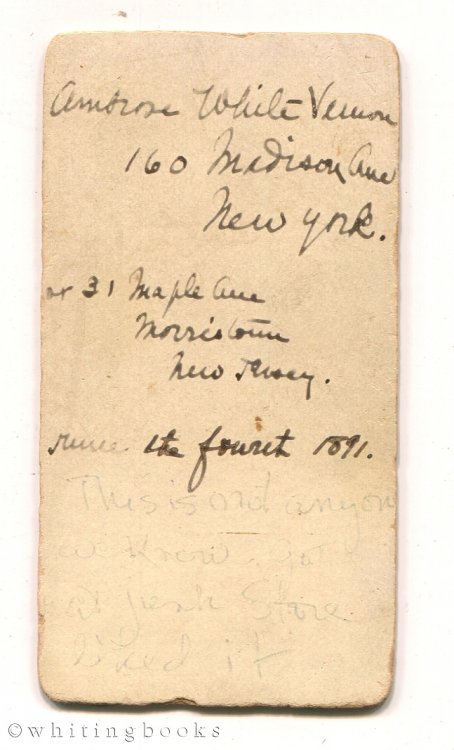 Ambrose White Vernon
160 Madison Ave
New York.
or 31 Maple Ave
Morristown
New Jersey.
June the fourth 1891.
This is not anyone
we know. Got
at junk Store
liked it
©whitingbooks